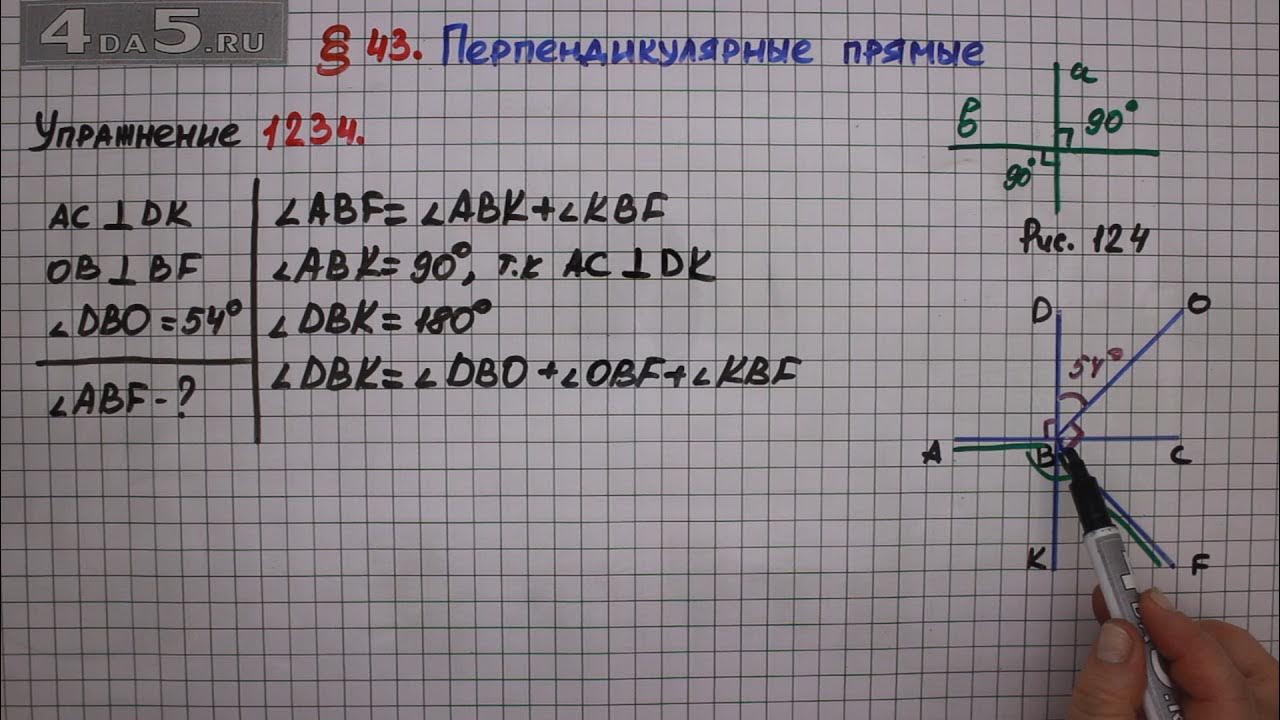 4DA5.RU
§ 43. Перпендикулярные прямые
Упражнение 1234.
AC ⊥ DK
OB ⊥ BF
∠DBO = 54°
∠ABF - ?
∠ABF = ∠ABK + ∠KBF
∠ABK = 90°, т.к AC ⊥ DK
∠DBK = 180°
∠DBK = ∠DBO + ∠OBF + ∠KBF
a
б
90°
90°
Рис. 124
D
O
54°
A
B
C
K
F